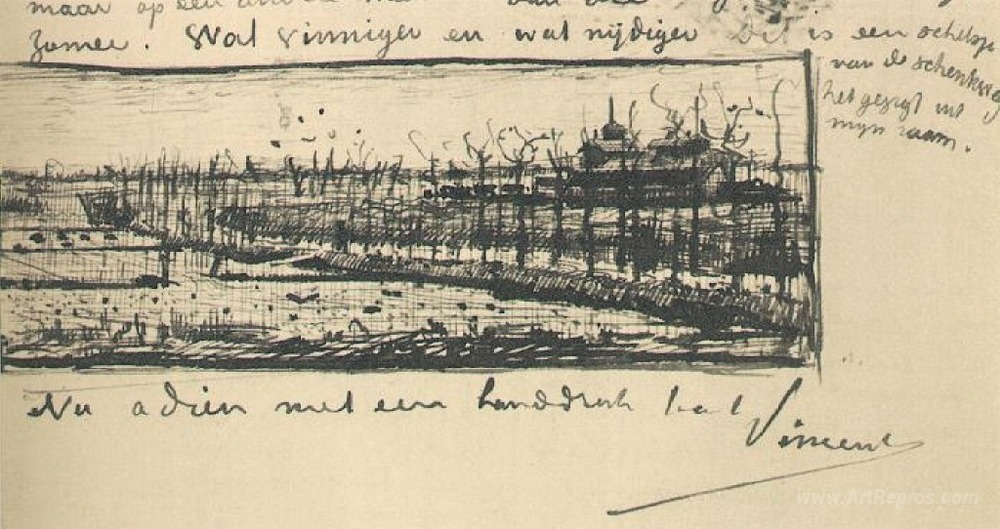 maar op een
zomer. Wat vinniger en wat nijdiger Dit is een schetsje
van de schenkweg
het gezigt uit
mijn raam.
Nu adieu met een handdruk
Vincent
www.ArtRepros.com